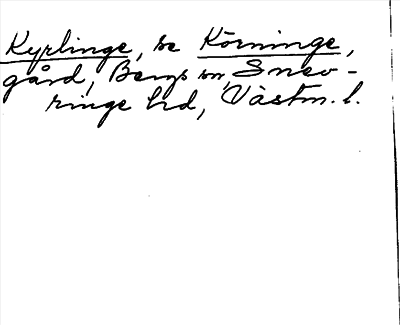 Kyrlinge, se Körninge,
gård, Bergs sn, Snev-
ringe hd, Västm. l.